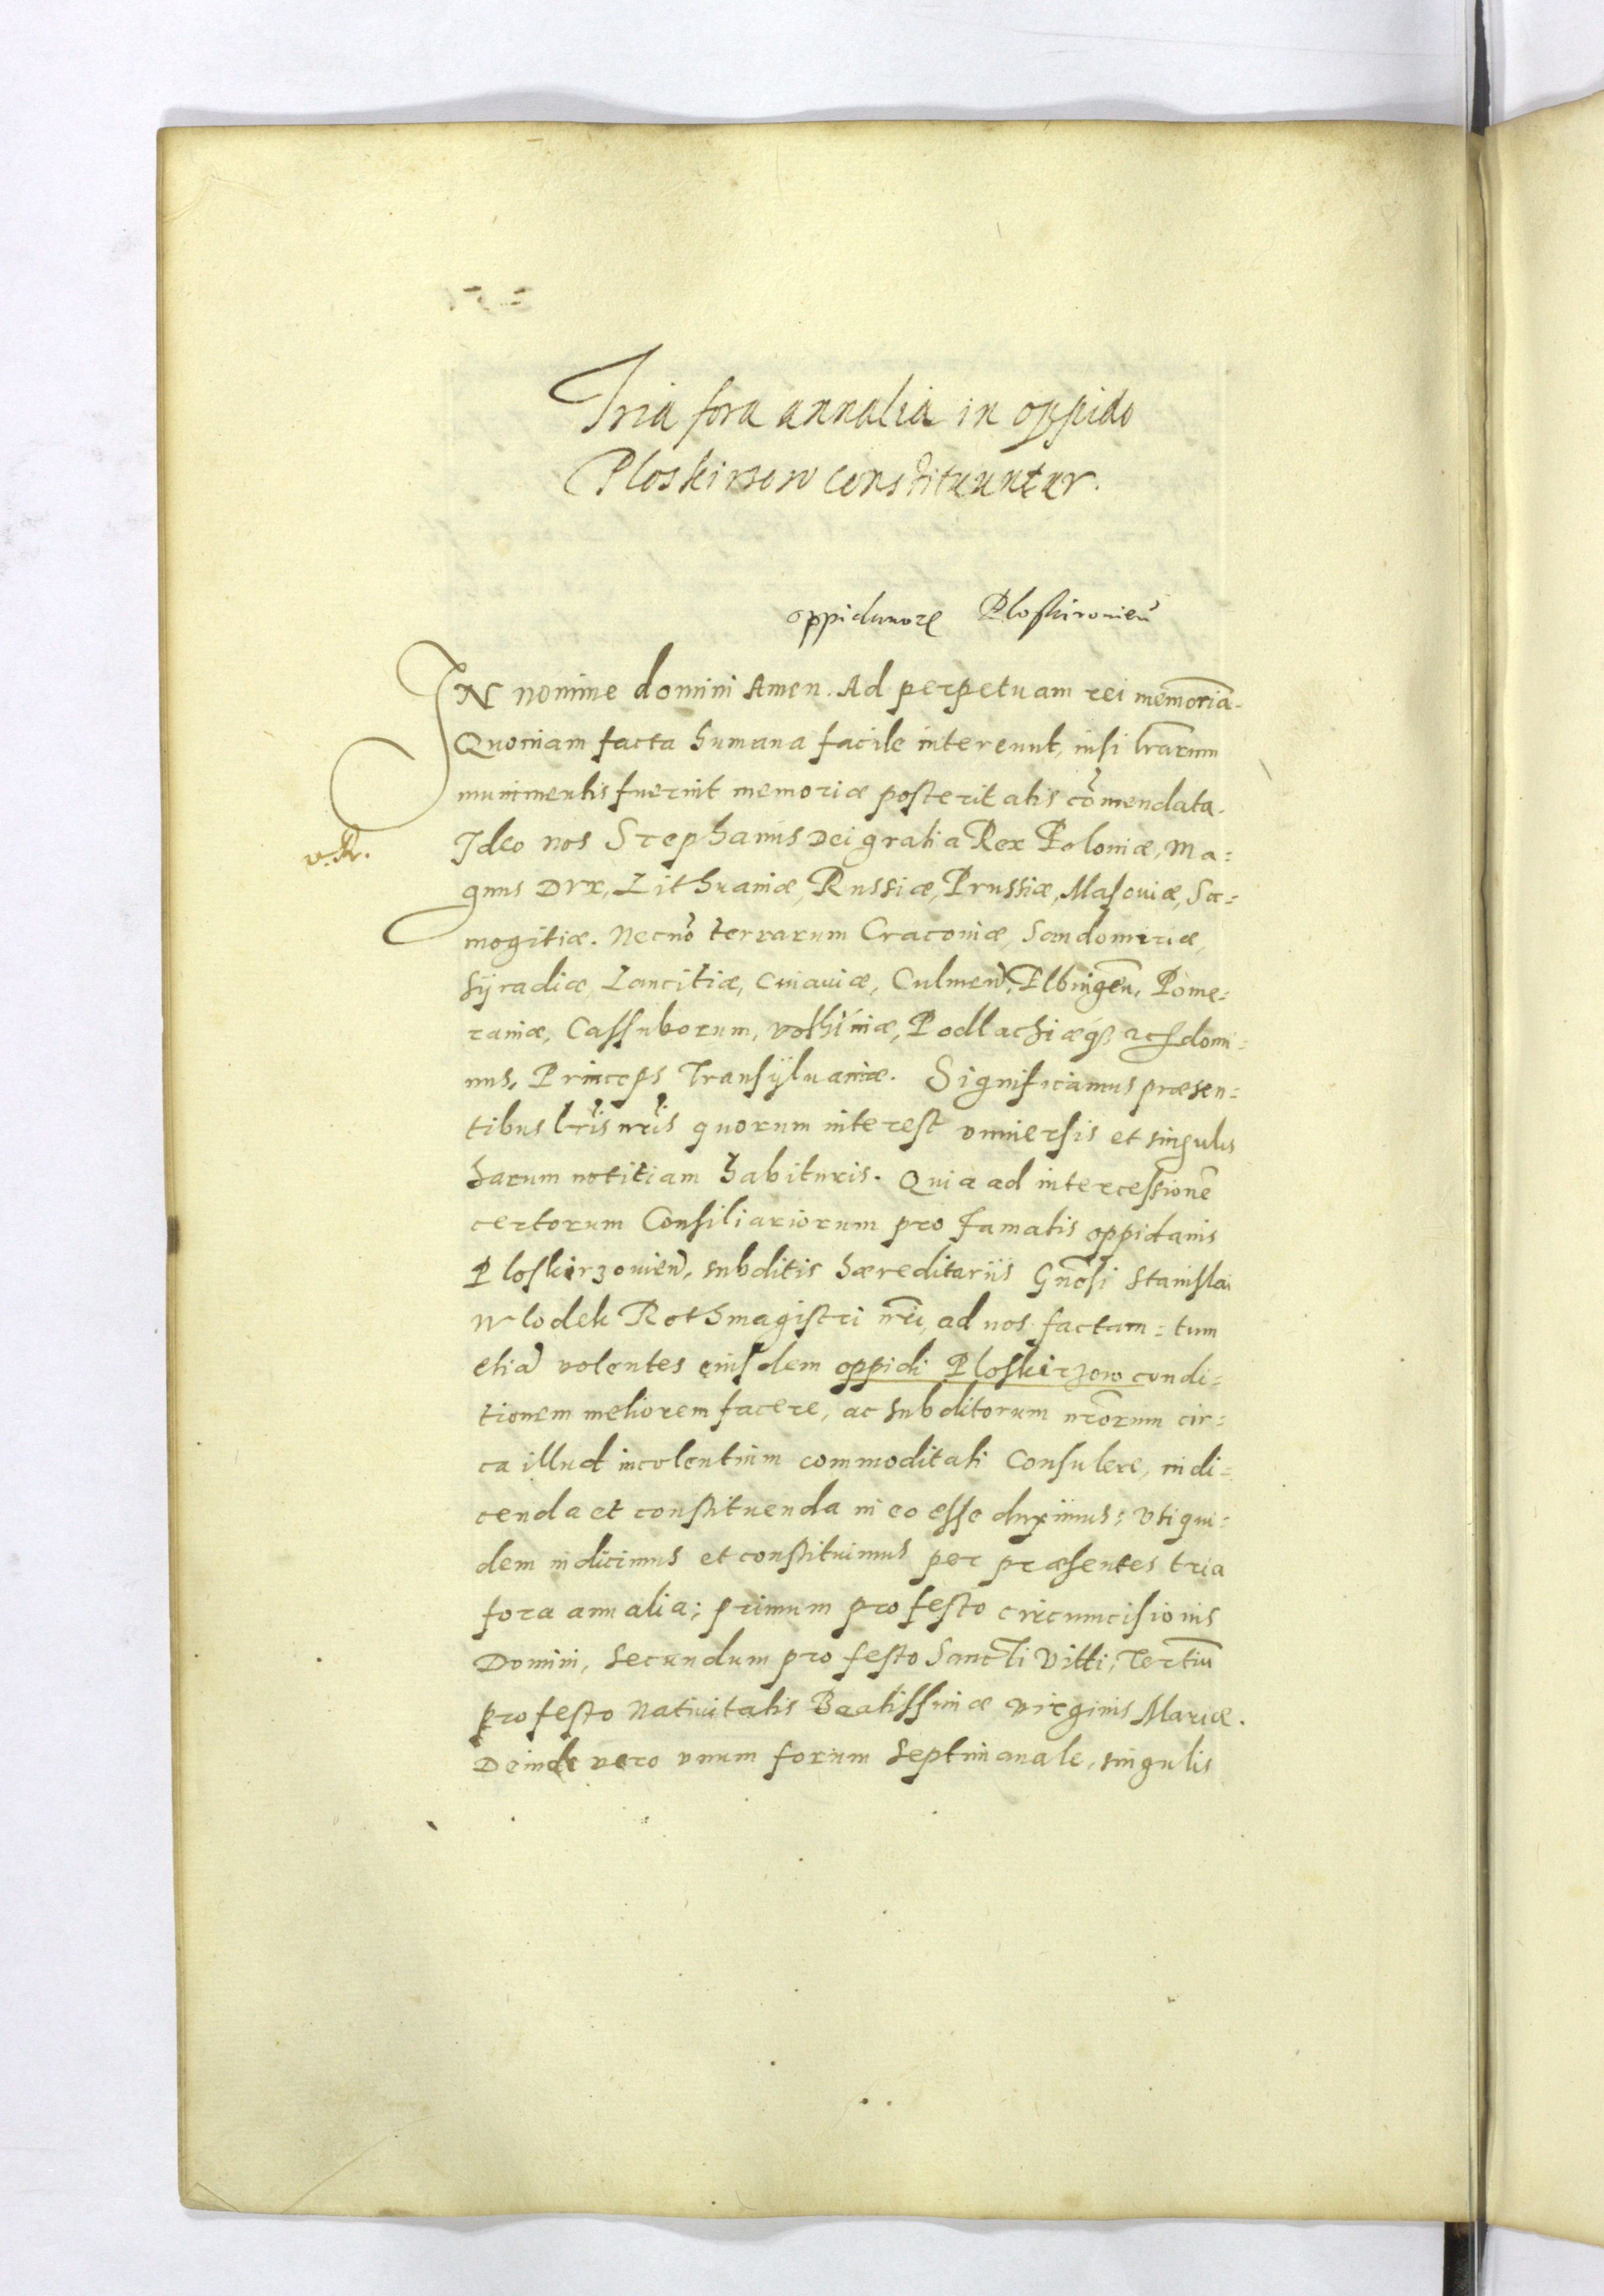 Tria fora annalia in oppido
Ploskirzow constituuntur.
oppidanorę Ploskironień
IN nomine domini Amen. Ad perpetuam rei memoriā.
Quoniam facta humana facile intereunt, nisi lrārum
munimentis fuerint memoriæ posteritatis cōmendata.
Ideo nos Stephanus Dei gratia Rex Poloniæ, Ma=
v. R.
gnus Dux, Lithuaniæ, Russiæ, Prussiæ, Masouiæ, Sa=
mogitiæ. Necnō terrarum Cracouiæ, Sandomiriæ,
Syradiæ, Lancitiæ, Cuiauiæ, Culmeñ, Elbingeñ, Pome=
raniæ, Cassuborum, volhiniæ, Podlachiæq3 domi=
nus, Princeps Transyluaniæ. Significamus præsen=
tibus lr̃is nr̃is quorum interest vniuersis et singulis
harum notitiam habituris. Quia ad intercessionē
certorum Consiliariorum pro famatis oppidanis
Ploskirzouieñ, subditis hæreditariis Gnōsi Stanislai
Wlodek Rothmagistri nr̄i, ad nos factam = tum
etiā volentes eiusdem oppidi Ploskirzow condi=
tionem meliorem facere, ac subditorum nrōrum cir=
ca illud incolentium commoditati Consulere, indi=
cenda et constituenda in eo esse duximus; vti qui=
dem indicimus et constituimus per præsentes tria
fora annalia; primum pro festo circumcisionis
Domini, secundum pro festo Sancti Vitti, Tertiū
pro festo Natiuitatis Beatissimæ virginis Mariæ.
Deinde vero vnum forum septimanale, singulis